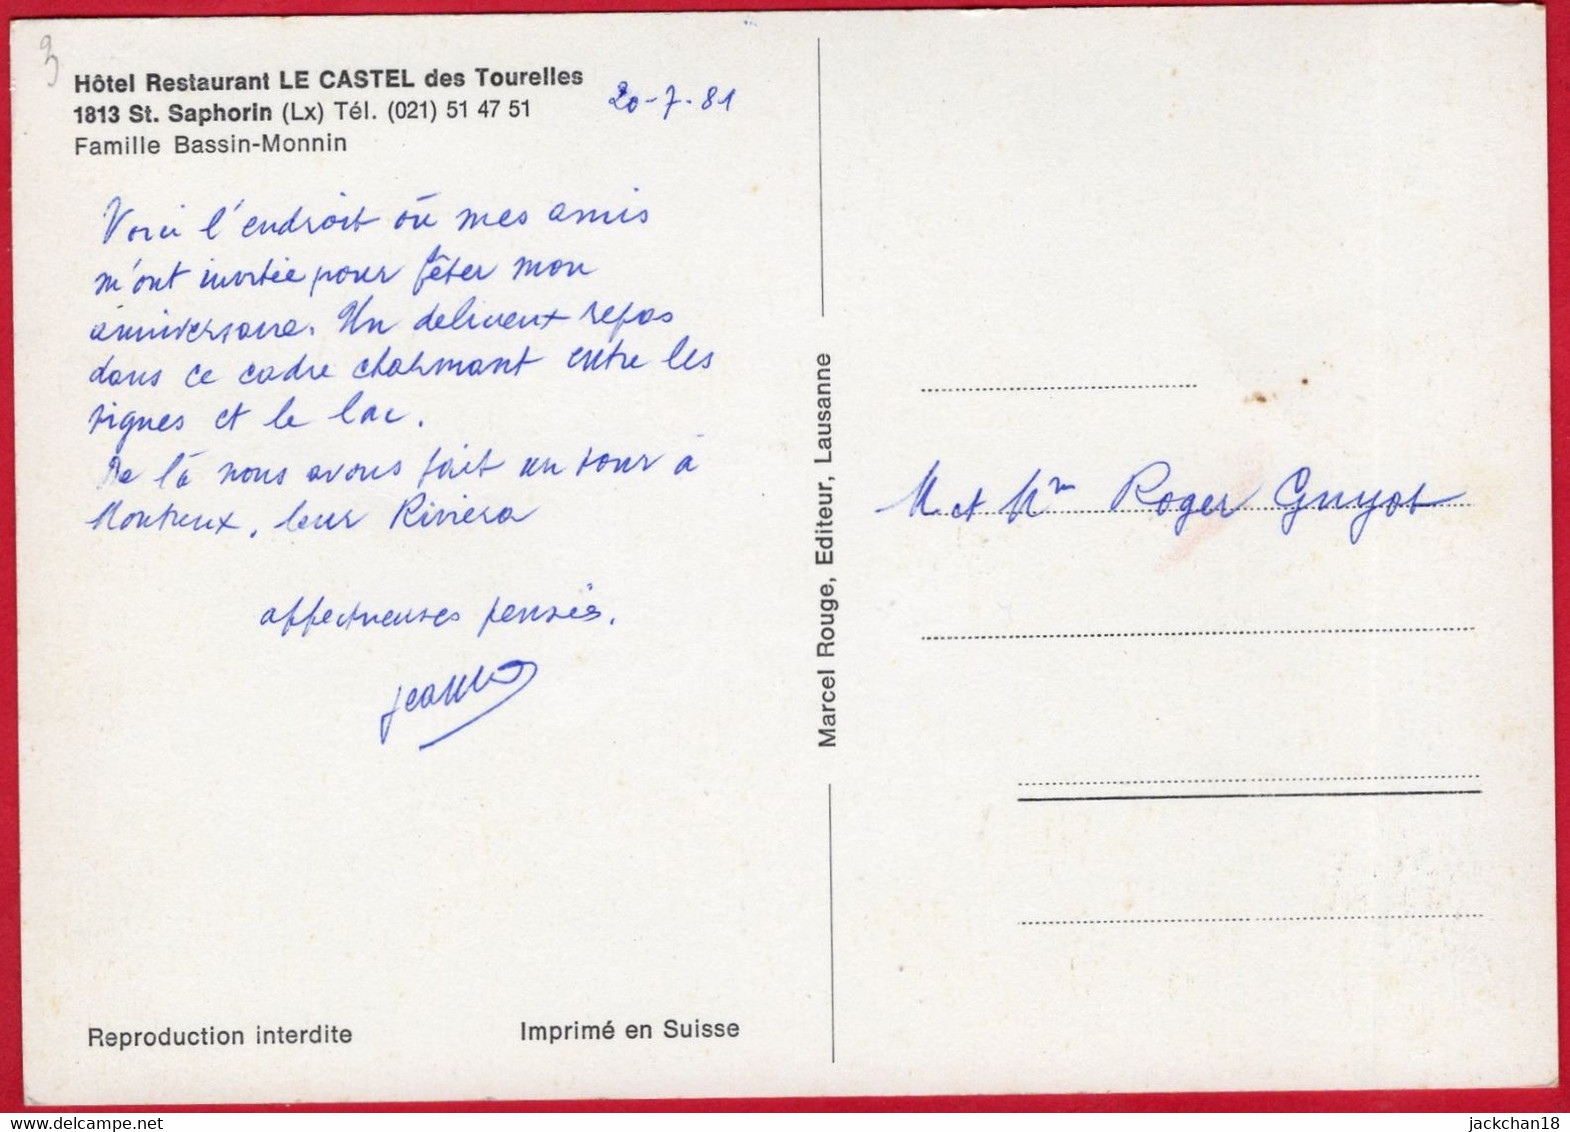 3
Hôtel Restaurant LE CASTEL des Tourelles
1813 St. Saphorin (Lx) Tél. (021) 51 47 51
Famille Bassin-Monnin
20-7-81
Voici l'endroit où mes amis
m'ont invitée pour fêter mon
anniversaire. Un delicieux repas
dans ce cadre charmant entre les
vignes et le lac.
De là nous avons fait un tour à
Montreux, leur Riviera
affectueuses pensées.
Marcel Rouge, Editeur, Lausanne
M et Mm Roger Guyot
Reproduction interdite
Imprimé en Suisse
jackchan18